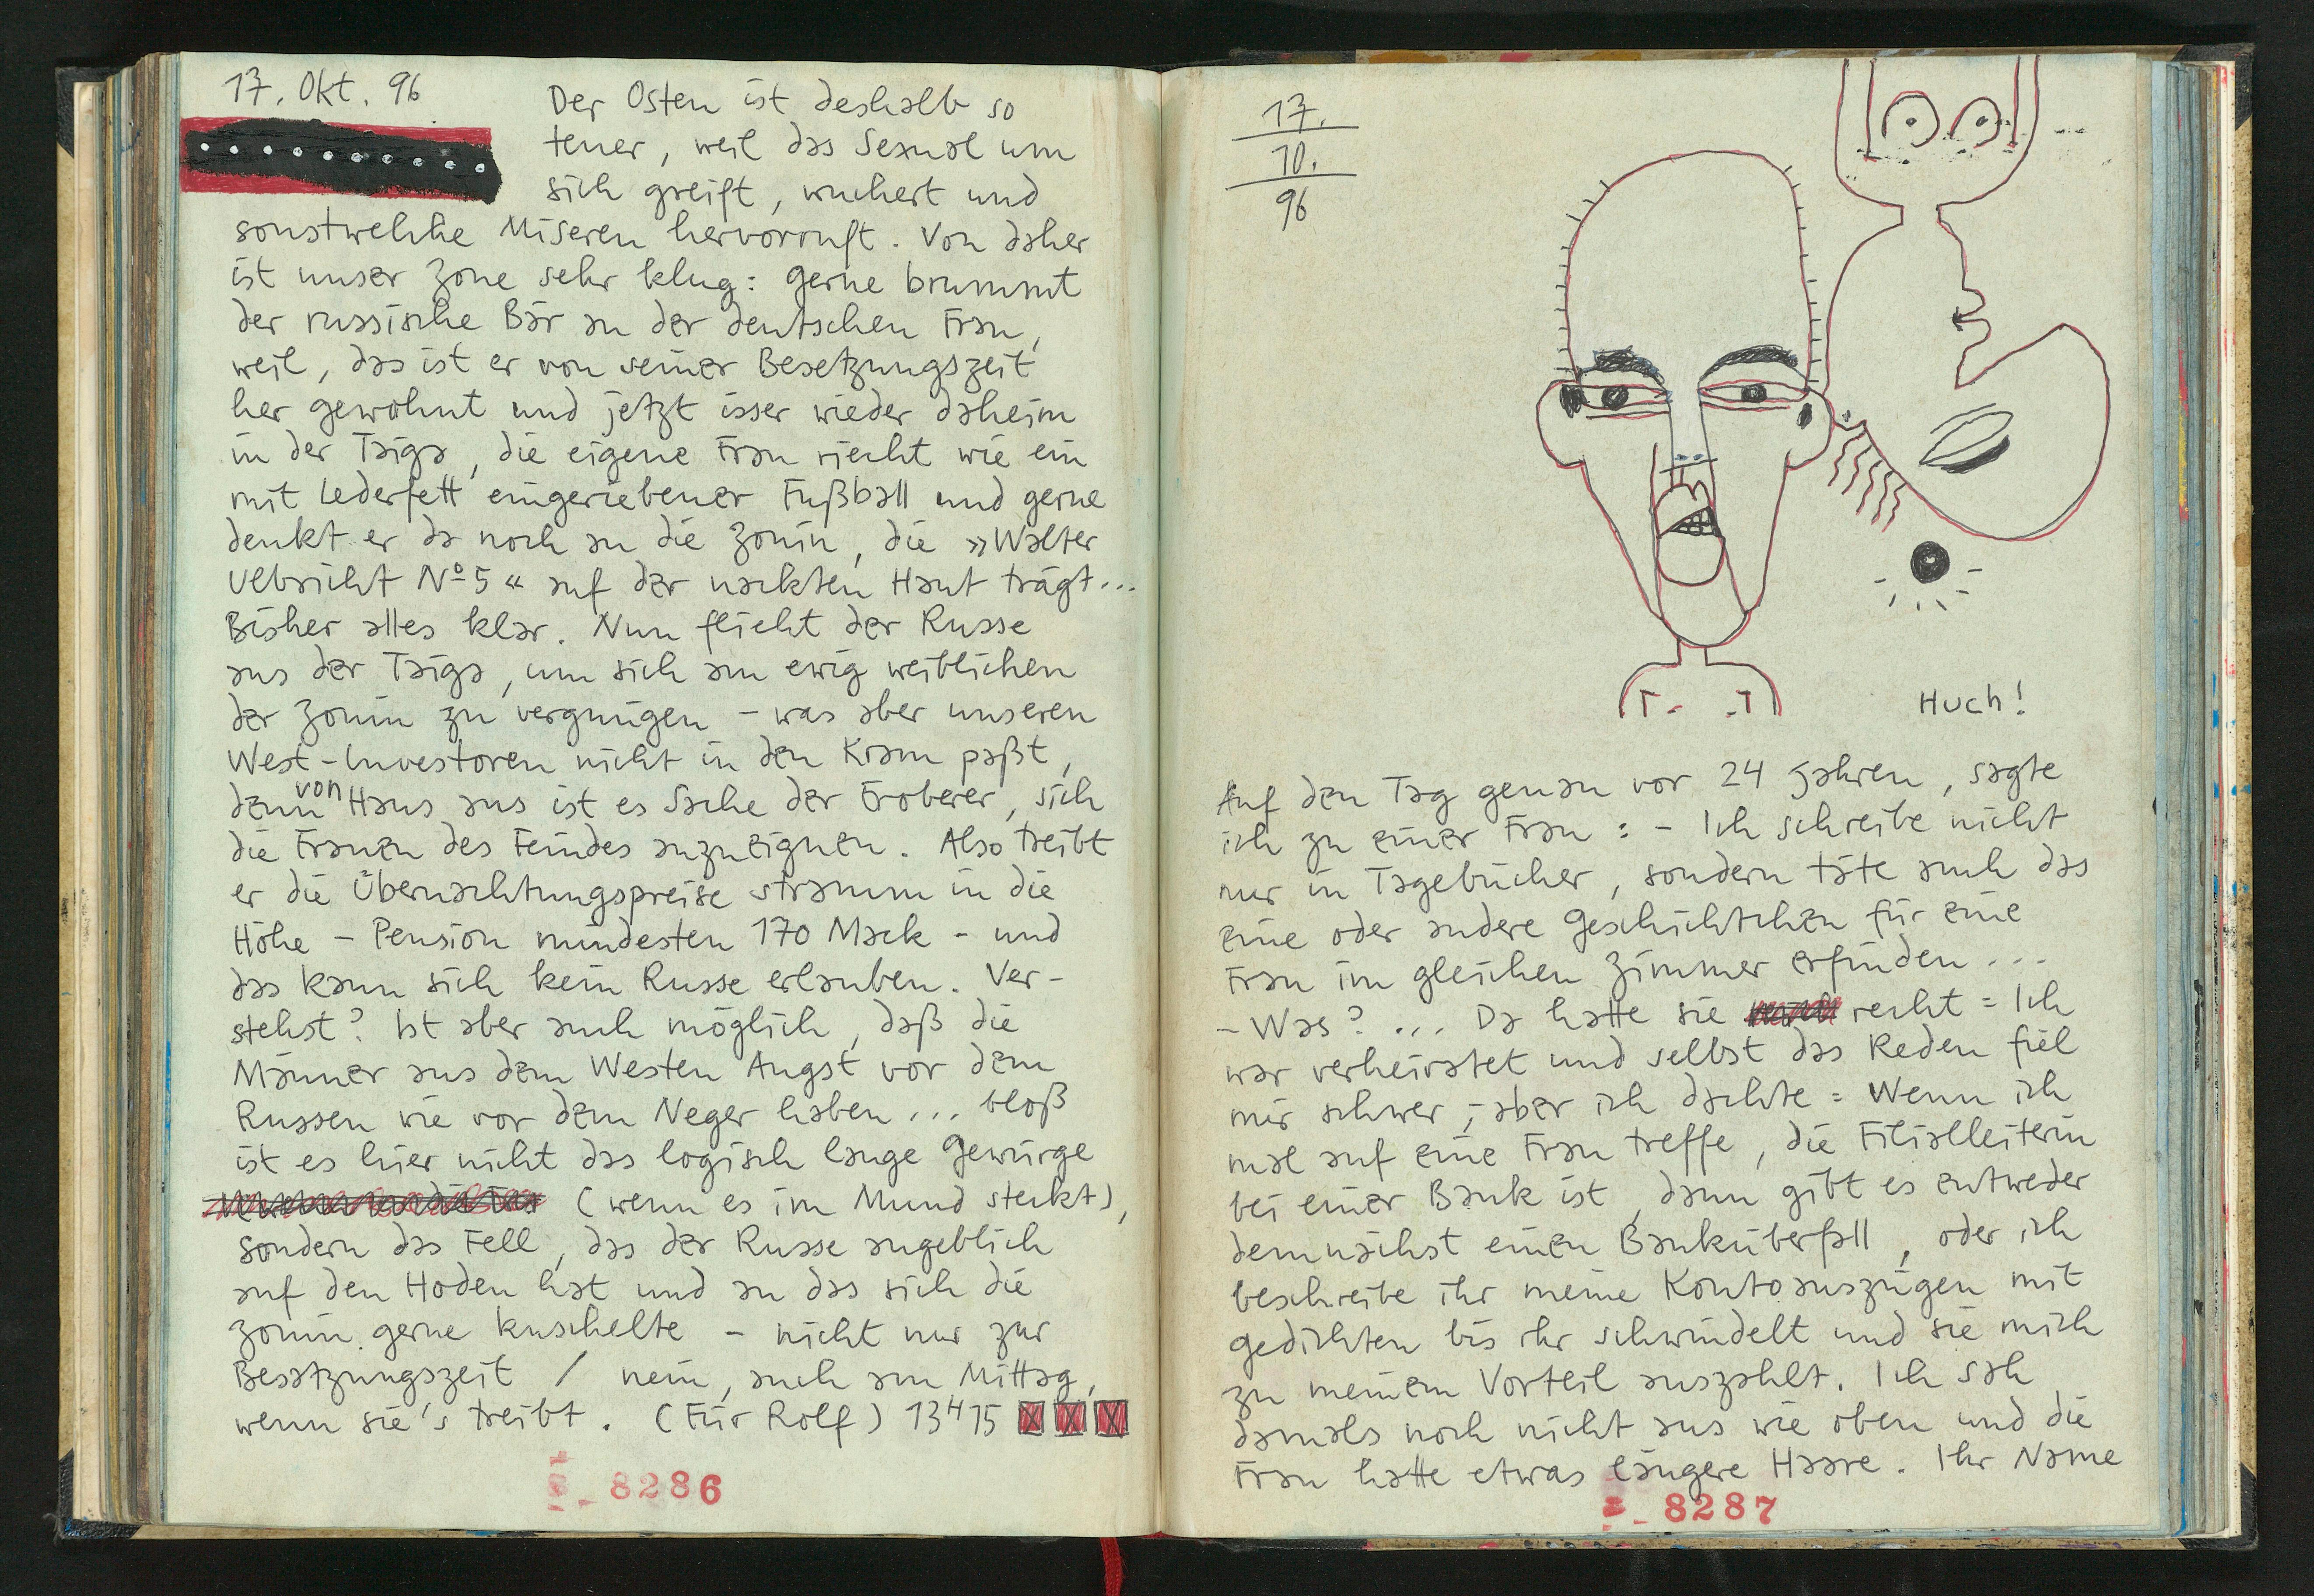 17. Okt. 96
Der Osten ist deshalb so
teuer, weil das Sexual um
sich greift, wuchert und
sonstwelche Miseren hervorruft. Von daher
ist unser Zone sehr klug: gerne brummt
der russische Bär an der deutschen Frau,
weil, das ist er von seiner Besetzungszeit
her gewohnt und jetzt isser wieder daheim
in der Taiga, die eigene Frau riecht wie ein
mit Lederfett eingeriebener Fußball und gerne
denkt er da noch an die Zonin, die »Walter
Ulbricht Nº 5« auf der nackten Haut trägt...
Bisher alles klar. Nun flieht der Russe
aus der Taiga, um sich am ewig weiblichen
der Zonin zu vergnügen – was aber unseren
West-Investoren nicht in den Kram paßt,
denn von Haus aus ist es Sache der Eroberer, sich
die Frauen des Feindes anzueignen. Also treibt
er die Übernachtungspreise stramm in die
Höhe – Pension mindesten 170 Mark – und
das kann sich kein Russe erlauben. Ver-
stehst? Ist aber auch möglich, daß die
Männer aus dem Westen Angst vor dem
Russen wie vor dem Neger haben... bloß
ist es hier nicht das logisch lange Gewürge
(wenn es im Mund steckt),
sondern das Fell, das der Russe angeblich
auf den Hoden hat und an das sich die
Zonin gerne kuschelte – nicht nur zur
Besatzungszeit / nein, auch am Mittag,
wenn sie's treibt. (Für Rolf) 13ʰ15
8286
17.
10.
96
Huch!
Auf den Tag genau vor 24 Jahren, sagte
ich zu einer Frau: – Ich schreibe nicht
nur in Tagebücher, sondern täte auch das
eine oder andere Geschichtchen für eine
Frau im gleichen Zimmer erfinden...
– Was? ... Da hatte sie recht: Ich
war verheiratet und selbst das Reden fiel
mir schwer, – aber ich dachte: Wenn ich
mal auf eine Frau treffe, die Filialleiterin
bei einer Bank ist, dann gibt es entweder
demnächst einen Banküberfall, oder ich
beschreibe ihr meine Kontoauszügen mit
gedichten bis ihr schwindelt und sie mich
zu meinem Vorteil auszahlt. Ich sah
damals noch nicht aus wie oben und die
Frau hatte etwas längere Haare. Ihr Name
8287